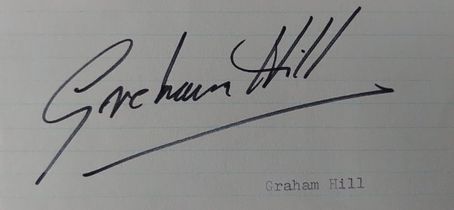 Graham Hill
Graham Hill